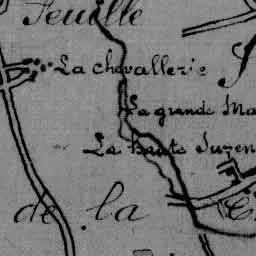 Feuille
La chevallerie
La grande Ma
La haute Juzen
de la